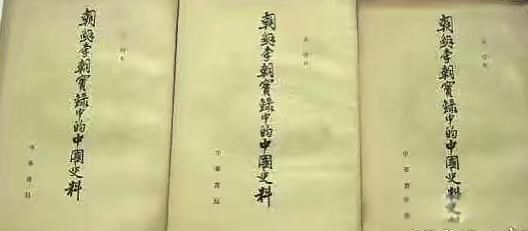 朝鮮李朝實錄中的中國史料
中華書局
朝鮮李朝實錄中的中國史料
中華書局
朝鮮李朝實錄中的中國史料
中華書局